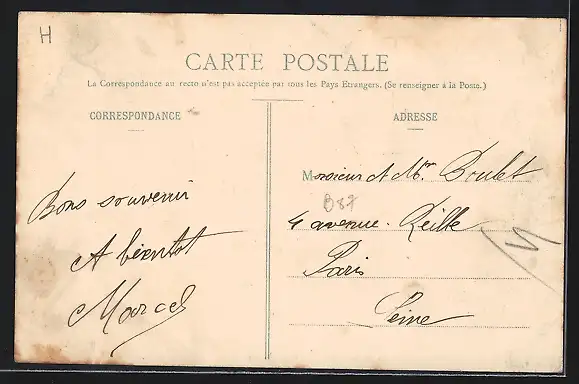 H
CARTE POSTALE
La Correspondance au recto n'est pas acceptée par tous les Pays Etrangers. (Se renseigner à la Poste.)
CORRESPONDANCE
Bons souvenir
A bientot
Marcel
ADRESSE
Monsieur et Mme Boulet
B87
4 avenue Reille
Paris
Seine